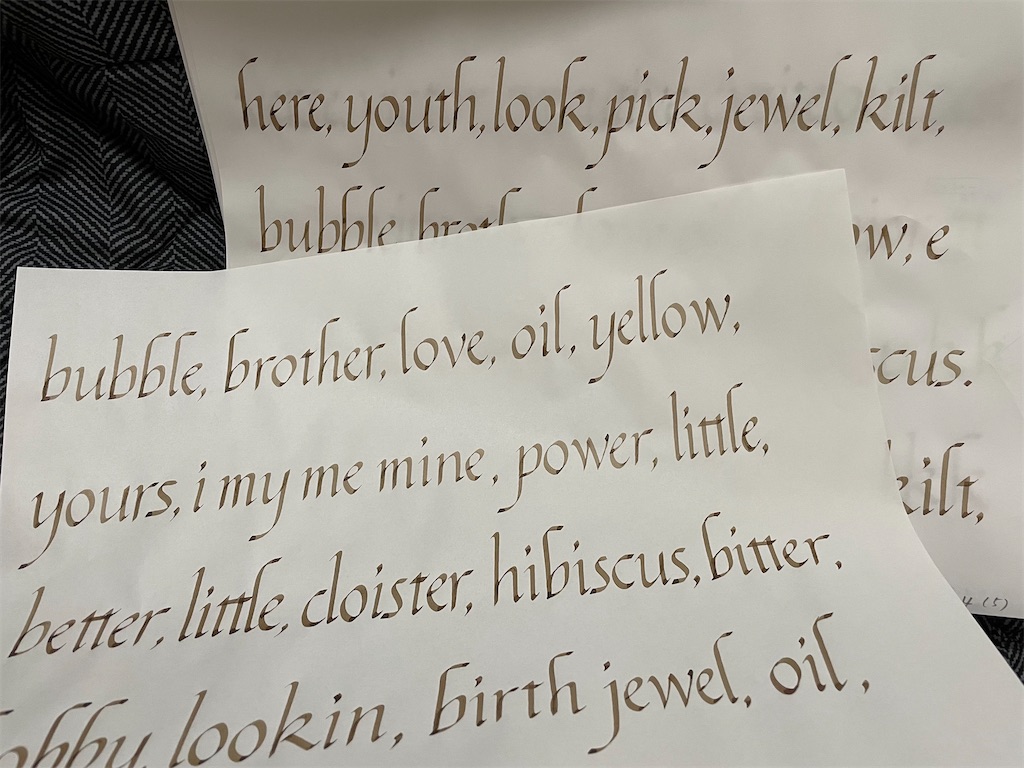 here, youth, look, pick, jewel, kilt,
bubble
ow, e
cus.
kilt,
4 (5)
bubble, brother, love, oil, yellow,
yours, i my me mine, power, little,
better, little, cloister, hibiscus, bitter,
lookin, birth jewel, oil,